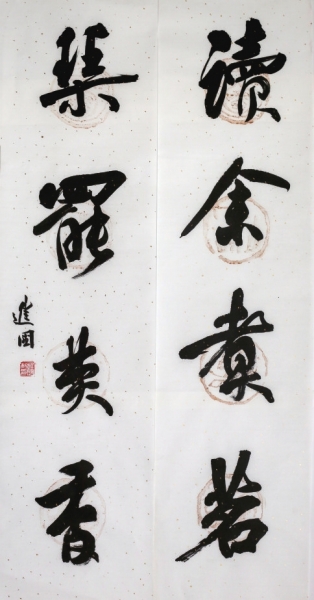 讀余煮茗
琹罷焚香
進國